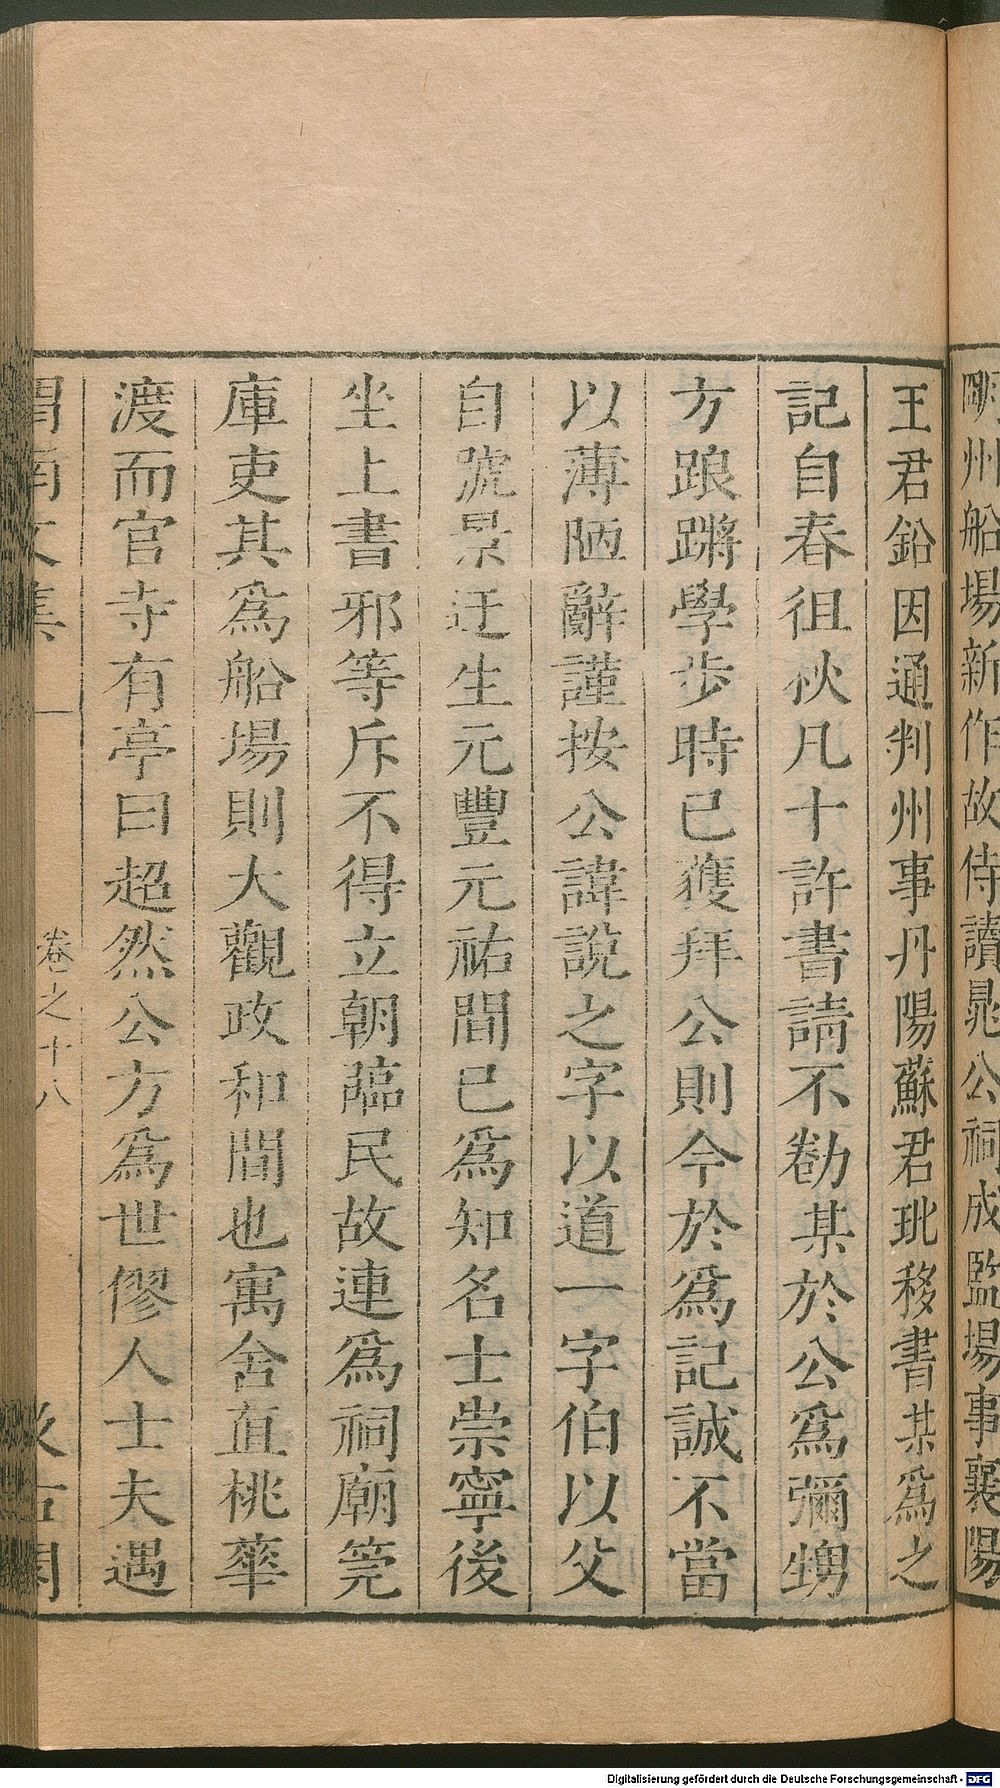 明州船場新作故侍讀晁公祠成監場事襄陽
王君鉛因通判州事丹陽蘇君玭移書某爲之
記自春徂秋凡十許書請不勌某於公爲彌甥
方踉蹡學步時已獲拜公則今於爲記誠不當
以薄陋辭謹按公諱說之字以道一字伯以父
自號景迂生元豐元祐間已爲知名士崇寧後
坐上書邪等斥不得立朝臨民故連爲祠廟筦
庫吏其爲船場則大觀政和間也寓舍直桃華
渡而官寺有亭曰超然公方爲世僇人士夫遇
渭南文集 卷之十八 汲古閣
Digitalisierung gefördert durch die Deutsche Forschungsgemeinschaft - DFG